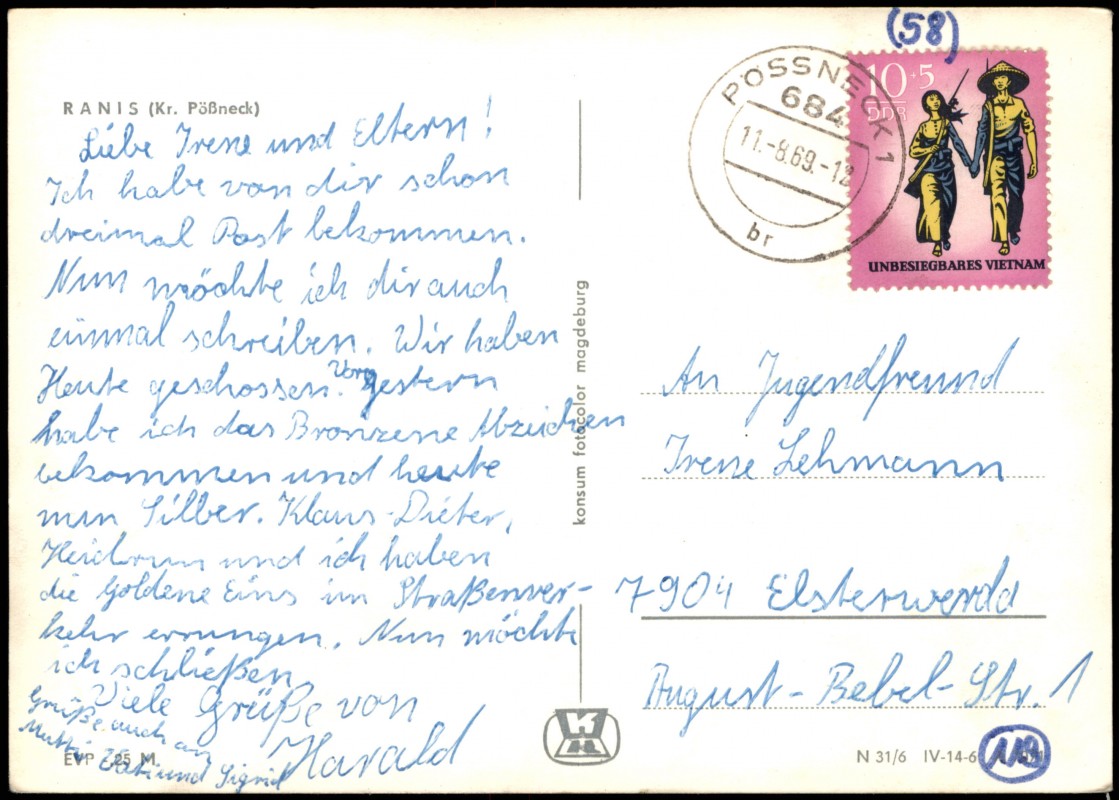 (58)
RANIS (Kr. Pößneck)
Liebe Irene und Eltern!
Ich habe von dir schon
dreimal Post bekommen.
Nun möchte ich dir auch
einmal schreiben. Wir haben
Heute geschossen. Vorgestern
habe ich das Bronzene Abzeichen
bekommen und heute
nun Silber. Klaus-Dieter,
Heidrun und ich haben
die Goldene Eins im Straßenver-
kehr errungen. Nun möchte
ich schließen.
Viele Grüße von
Harald
Grüße auch an
Mutti und Sigrid
EVP -,25 M
konsum fotocolor magdeburg
PÖSSNECK 1
684
11.-8.69.-12
br
10+5
DDR
UNBESIEGBARES VIETNAM
An Jugendfreund
Irene Lehmann
7904 Elsterwerda
August-Bebel-Str. 1
K
M
N 31/6 IV-14-6